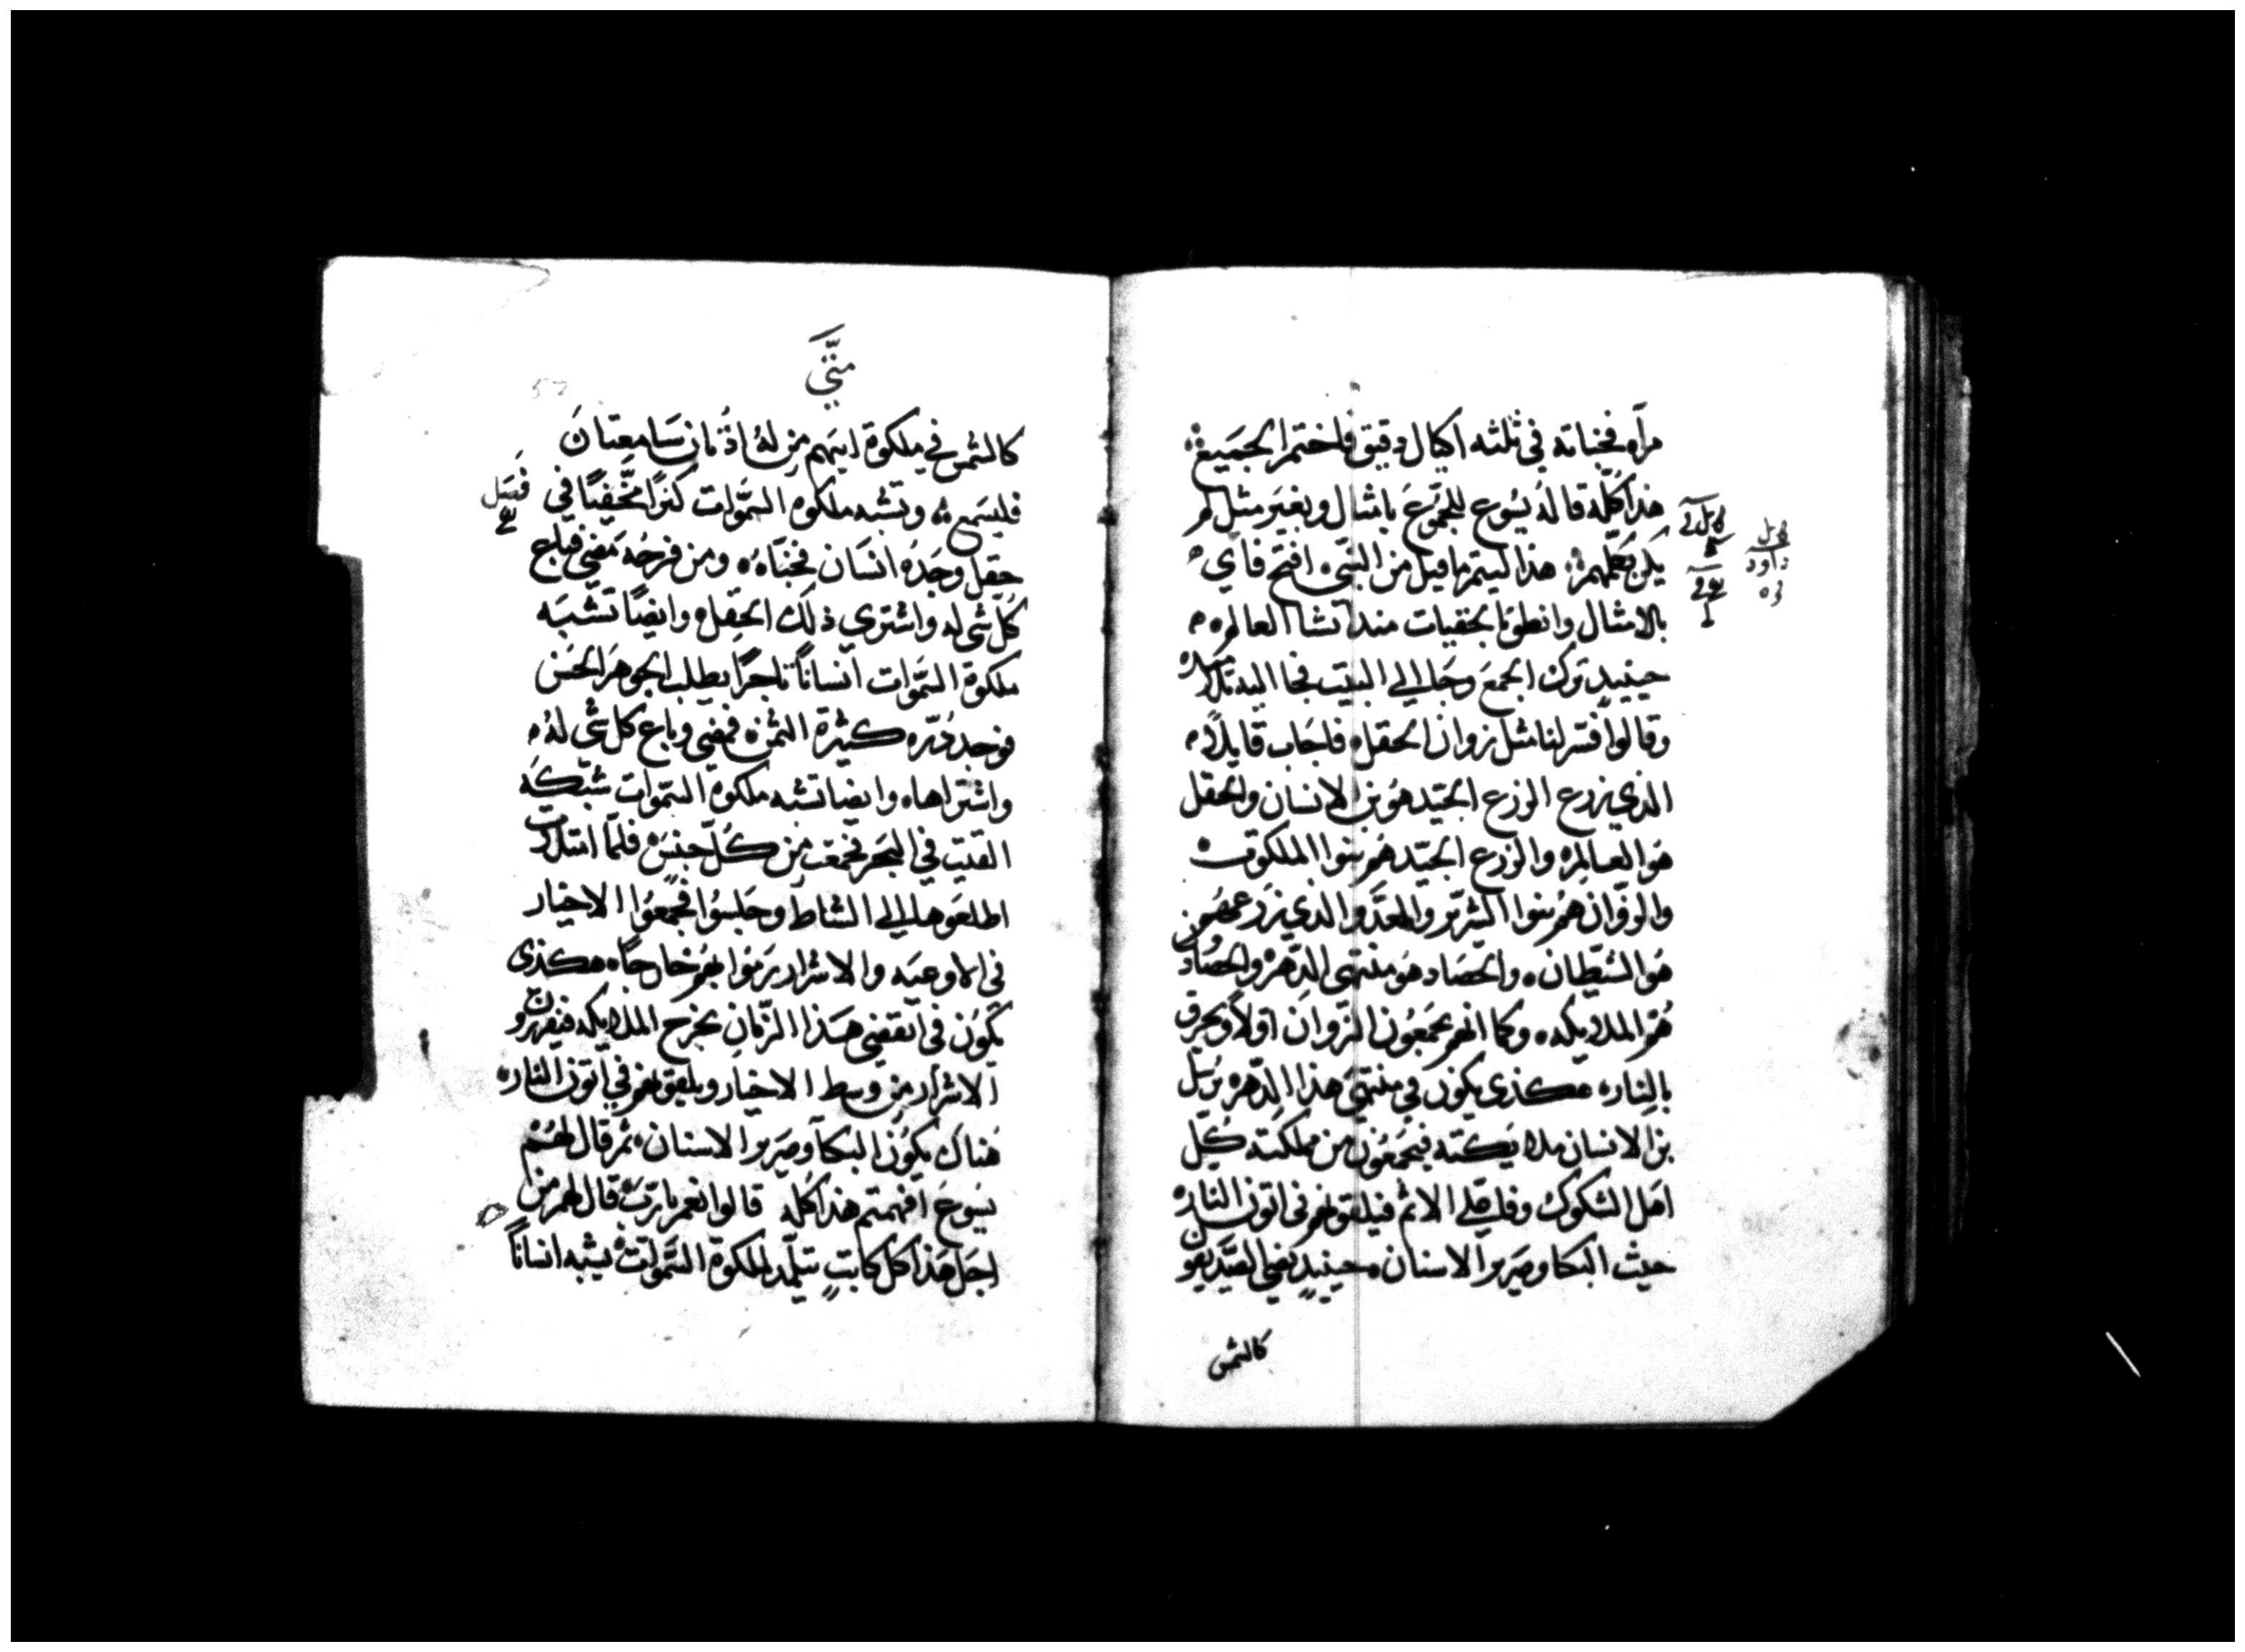 مرآه فخباته في ثلثه اكيال دقيق فاختمر الجميع
هذا كلّه قالهُ يسُوع للجموعَ بامثال وبغيَر مثل لم
يكن يكلمهم هذا ليتم ما قيل من النبي افتح فاي
بالامثال وانطق بالخفيات منذ انشا العالم
حينيدٍ ترك الجمعَ وجَا الي البيت فجا اليه تلاميده
وقالوا فسّر لنا مثل زوان الحقل فاجَاب قايلاً
الذي زرع الزرع الجيّد هوُ بن الانسان والحقل
هَو العالم والزرع الجيّد هم بنوا الملكوت
والزوّان همُ بنوا الشرّير والعدَّو الذي زرعهم
هوُ الشيّطان والحصَاد هوَ منتهى الدّهر والحصّادون
هُم الملايكه وكما انهم يجمَعُون الزوان اولاً ويحرق
بالنار هكذى يكون في منتهَي هذا الدّهر يرسَل
بن الانسان ملايكته فيجمَعُون من مملكته كلّ
اهَل الشكوك وفاعلي الاثم فيلقونهم في اتون النار
حيث البكا وصَرير الاسنان حينيدٍ يضي الصّديقون
كالشمس
فصَل
داود
متّي
52
كالشمس في ملكوة ابيَهم من لهُ اذُنان سَامعتان
فليسَمع وتشبه ملكوه السّموات كنزاً مخَّفيًا في
حقل وجَدهُ انسَان فخبّاهُ ومن فرحُه مَضي فباع
كُل شي له واشتري ذلك الحقل وايضاً تشبَه
ملكوة السّموات انساناً تاجرًا يطلب الجوهَر الحسَن
فوجد دُرّه كثيرة الثمن فمضي وباع كل شي لهُ
واشتراها وايضا تشبه ملكوة السّموات شبكَه
القيت في البحر فجمعَت من كُلّ جنسَ فلمّا امتلات
اطلعَوها الي الشاطَي وجَلسوُا فجمعَوُا الاخيار
في الاوعيَه والاشرار رَموُا بهم خارجًا هكذى
يكَون في انقضي هَذا الزّمان يخرج الملايكه فيفرزون
الاشرار من وسط الاخيار ويلقونهم في اتون النار
هُناك يكوُن البكآ وصَرير الاسنان ثم قال لهمُ
يسَوع افهمتم هذا كله قالوا نعم يارَبّ قال لهم من
اجَل هَذا كل كاتبٍ يتلّمد لملكوة السَّموات يشبه انساناً
فصَل